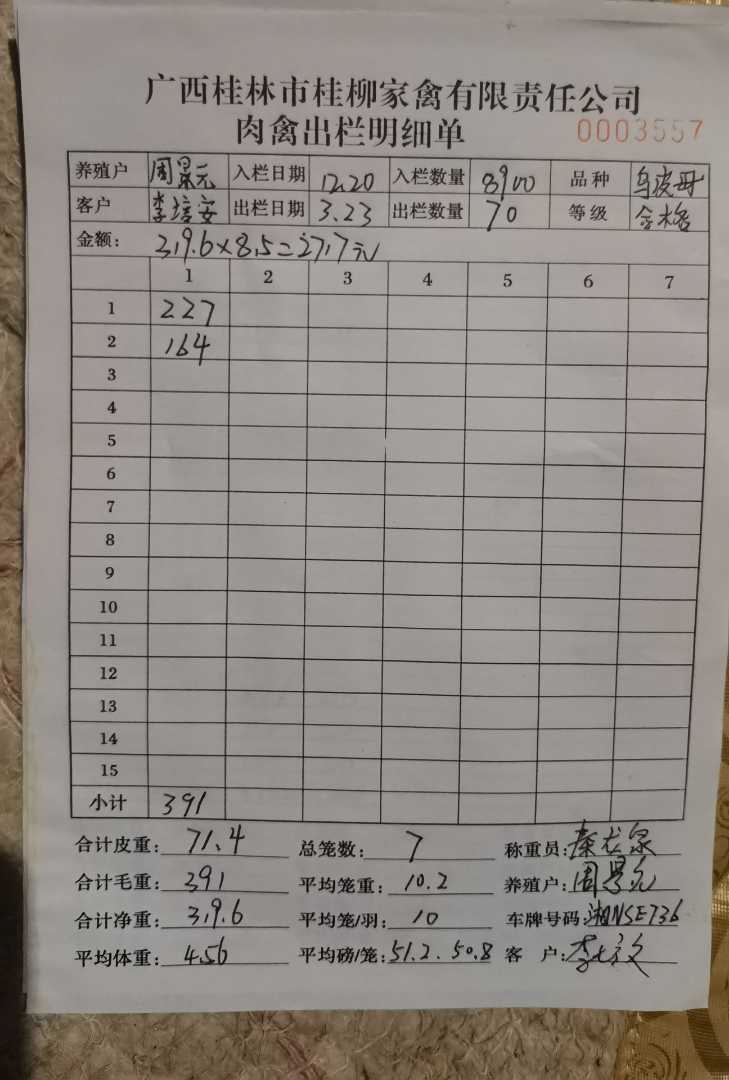 广西桂林市桂柳家禽有限责任公司
肉禽出栏明细单 0003557
养殖户 周景元 入栏日期 12.20 入栏数量 8900 品种 乌皮
客户 李培安 出栏日期 3.23 出栏数量 70 等级 合格
金额: 319.6×8.5=2717元
1 2 3 4 5 6 7
1 227
2 164
3
4
5
6
7
8
9
10
11
12
13
14
15
小计 391
合计皮重: 71.4 总笼数: 7 称重员: 秦龙泉
合计毛重: 391 平均笼重: 10.2 养殖户: 周景元
合计净重: 319.6 平均笼/羽: 10 车牌号码: 湘NSE736
平均体重: 4.56 平均磅/笼: 51.2. 50.8 客户: 李